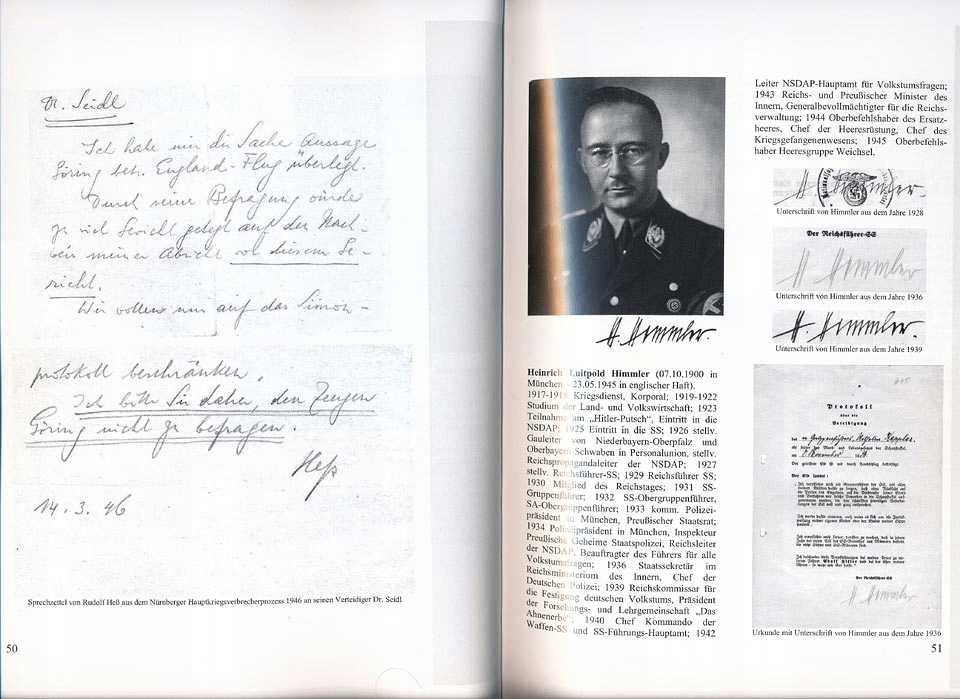 Dr. Seidl
Ich habe mir die Sache Aussage
Göring betr. England-Flug überlegt.
Durch seine Befragung würde
zu viel Gewicht gelegt auf den Nach-
weis meiner Absicht vor diesem Ge-
richt.
Wir wollen uns auf das Simon-
protokoll beschränken.
Ich bitte Sie daher, den Zeugen
Göring nicht zu befragen.
Heß
14.3.46
Sprechzettel von Rudolf Heß aus dem Nürnberger Hauptkriegsverbrecherprozess 1946 an seinen Verteidiger Dr. Seidl
50
H. Himmler.
Heinrich Luitpold Himmler (07.10.1900 in
München - 23.05.1945 in englischer Haft).
1917-1918 Kriegsdienst, Korporal; 1919-1922
Studium der Land- und Volkswirtschaft; 1923
Teilnahme am „Hitler-Putsch", Eintritt in die
NSDAP; 1925 Eintritt in die SS; 1926 stellv.
Gauleiter von Niederbayern-Oberpfalz und
Oberbayern-Schwaben in Personalunion, stellv.
Reichspropagandaleiter der NSDAP; 1927
stellv. Reichsführer-SS; 1929 Reichsführer SS;
1930 Mitglied des Reichstages; 1931 SS-
Gruppenführer; 1932 SS-Obergruppenführer,
SA-Obergruppenführer; 1933 komm. Polizei-
präsident in München, Preußischer Staatsrat;
1934 Polizeipräsident in München, Inspekteur
Preußische Geheime Staatspolizei, Reichsleiter
der NSDAP, Beauftragter des Führers für alle
Volkstumsfragen; 1936 Staatssekretär im
Reichsministerium des Innern, Chef der
Deutschen Polizei; 1939 Reichskommissar für
die Festigung deutschen Volkstums, Präsident
der Forschungs- und Lehrgemeinschaft „Das
Ahnenerbe"; 1940 Chef Kommando der
Waffen-SS und SS-Führungs-Hauptamt; 1942
Leiter NSDAP-Hauptamt für Volkstumsfragen;
1943 Reichs- und Preußischer Minister des
Innern, Generalbevollmächtigter für die Reichs-
verwaltung; 1944 Oberbefehlshaber des Ersatz-
heeres, Chef der Heeresrüstung, Chef des
Kriegsgefangenenwesens; 1945 Oberbefehls-
haber Heeresgruppe Weichsel.
H. Himmler.
Unterschrift von Himmler aus dem Jahre 1928
Der Reichsführer-SS
H Himmler
Unterschrift von Himmler aus dem Jahre 1936
H. Himmler.
Unterschrift von Himmler aus dem Jahre 1939
Protokoll
über die
Vereidigung
Der Eid lautet:
Adolf Hitler
Der Reichsführer-SS
H Himmler
Urkunde mit Unterschrift von Himmler aus dem Jahre 1936
51